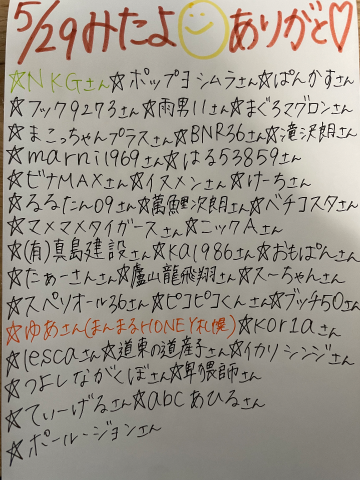 5/29みたよ ありがと♡
☆NKGさん☆ポップヨシムラさん☆ぱんかずさん
☆フック9273さん☆雨男11さん☆まぐろマグロンさん
☆まこっちゃんプラスさん☆BNR36さん☆滝沢朗さん
☆marni1969さん☆はる53859さん
☆ビナMAXさん☆イヌメンさん☆けーちさん
☆るるたん09さん☆萬鯉次朗さん☆ベチコスタさん
☆マメマメタイガースさん☆ニックAさん
☆(有)真島建設さん☆KA1986さん☆おもぱんさん
☆たぁーさんさん☆廬山龍飛翔さん☆スーちゃんさん
☆スペリオール36さん☆ピコピコくんさん☆ブッチ50さん
☆ゆあさん(まんまるHONEY札幌)☆KOR1aさん
☆lescaさん☆道東の道産子さん☆イカリシンジさん
☆つよしながくぼさん☆卑猥師さん
☆てぃーげるさん☆abcあひるさん
☆ポール・ジョンさん